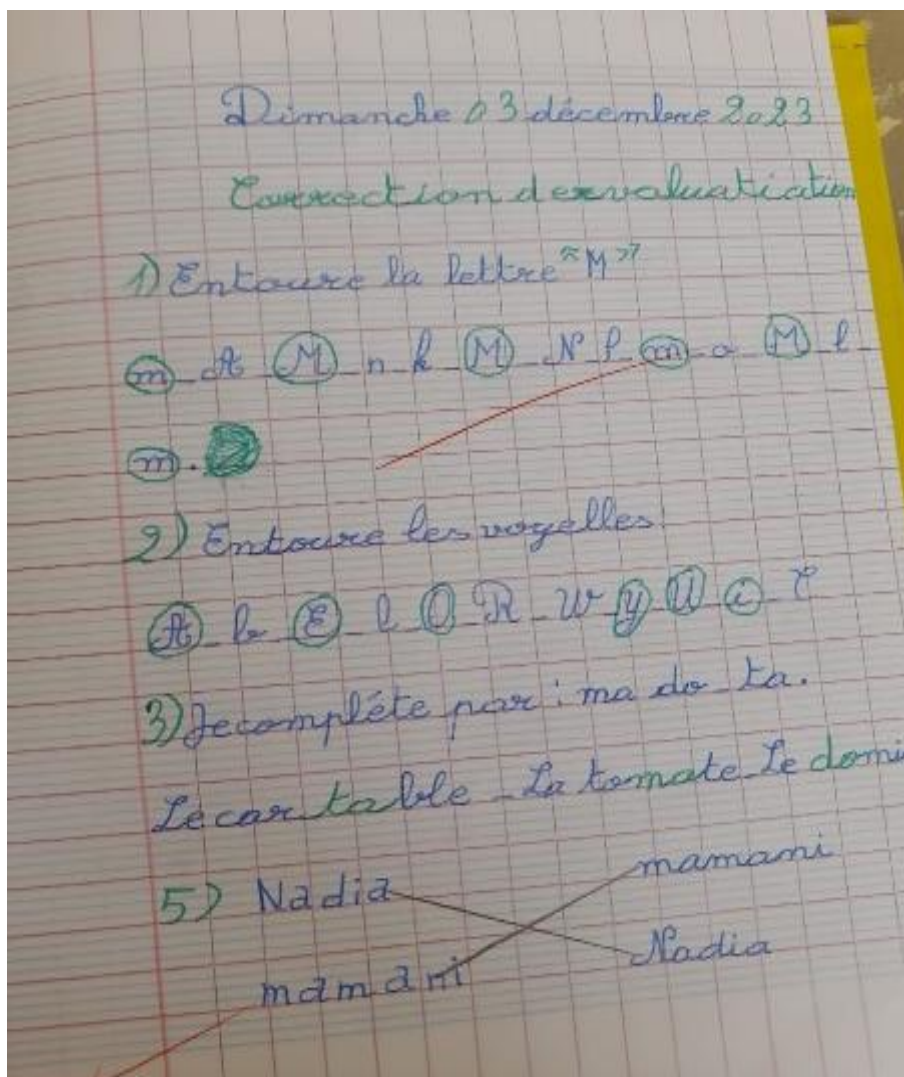 Dimanche 03 décembre 2023
Correction de evaluatiation
1) Entoure la lettre "M"
m - A M - n - k M - N - l - m - o - M - l -
m.
2) Entoure les voyelles
A - b - E - l O - R - W y U i - C
3) Je compléte par : ma - do - ta.
Le cartable - La tomate - Le domi
5) Nadia mamani
mamani Nadia